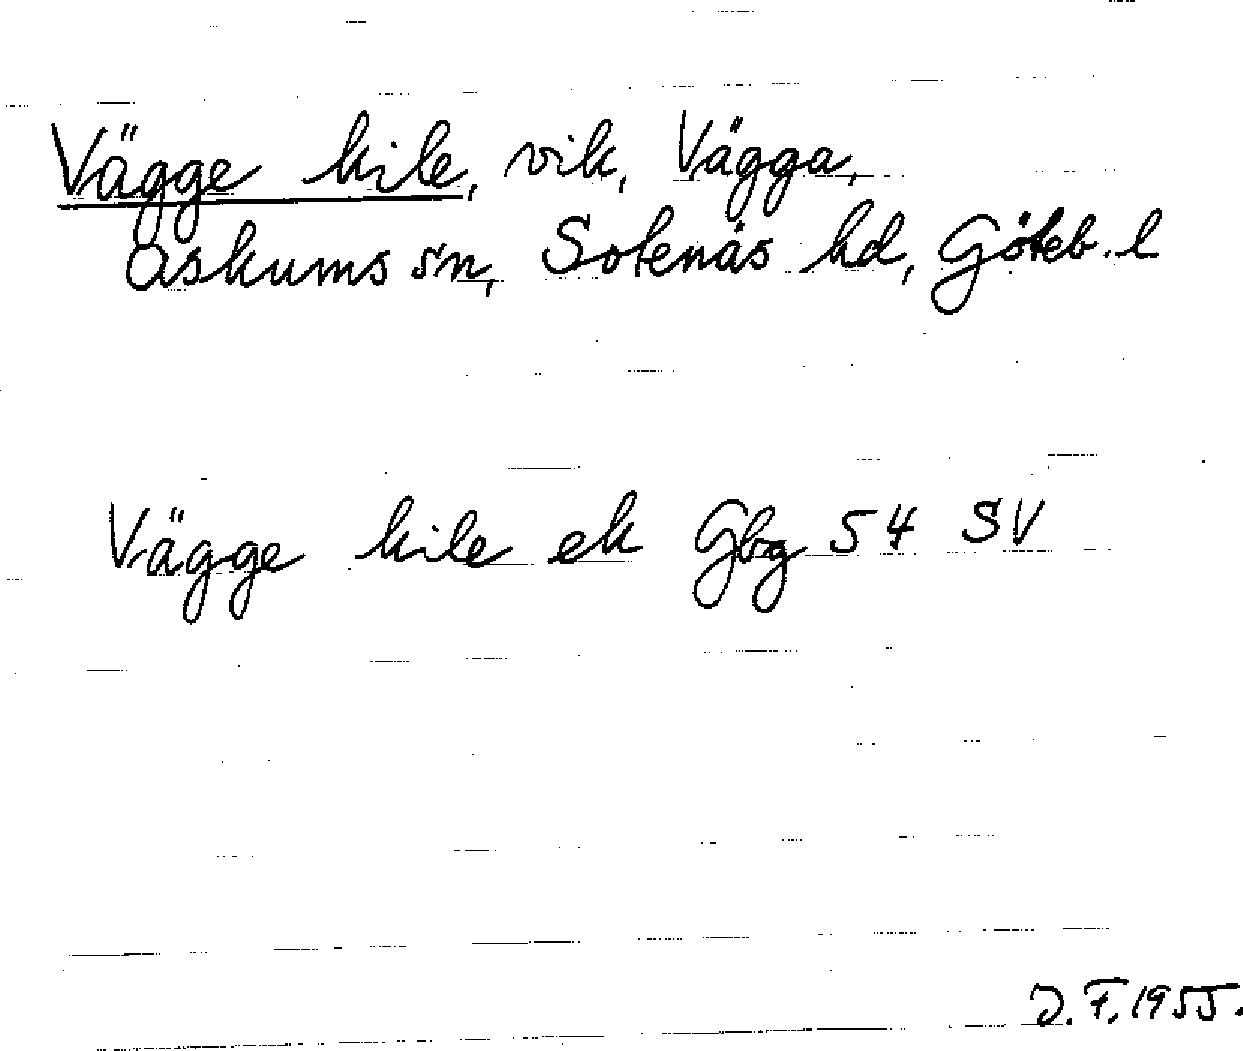 Vägge kile, vik, Vägga,
Askums sn, Sotenäs hd, Göteb. l
Vägge kile ek Gbg 54 SV
J. F. 1955.